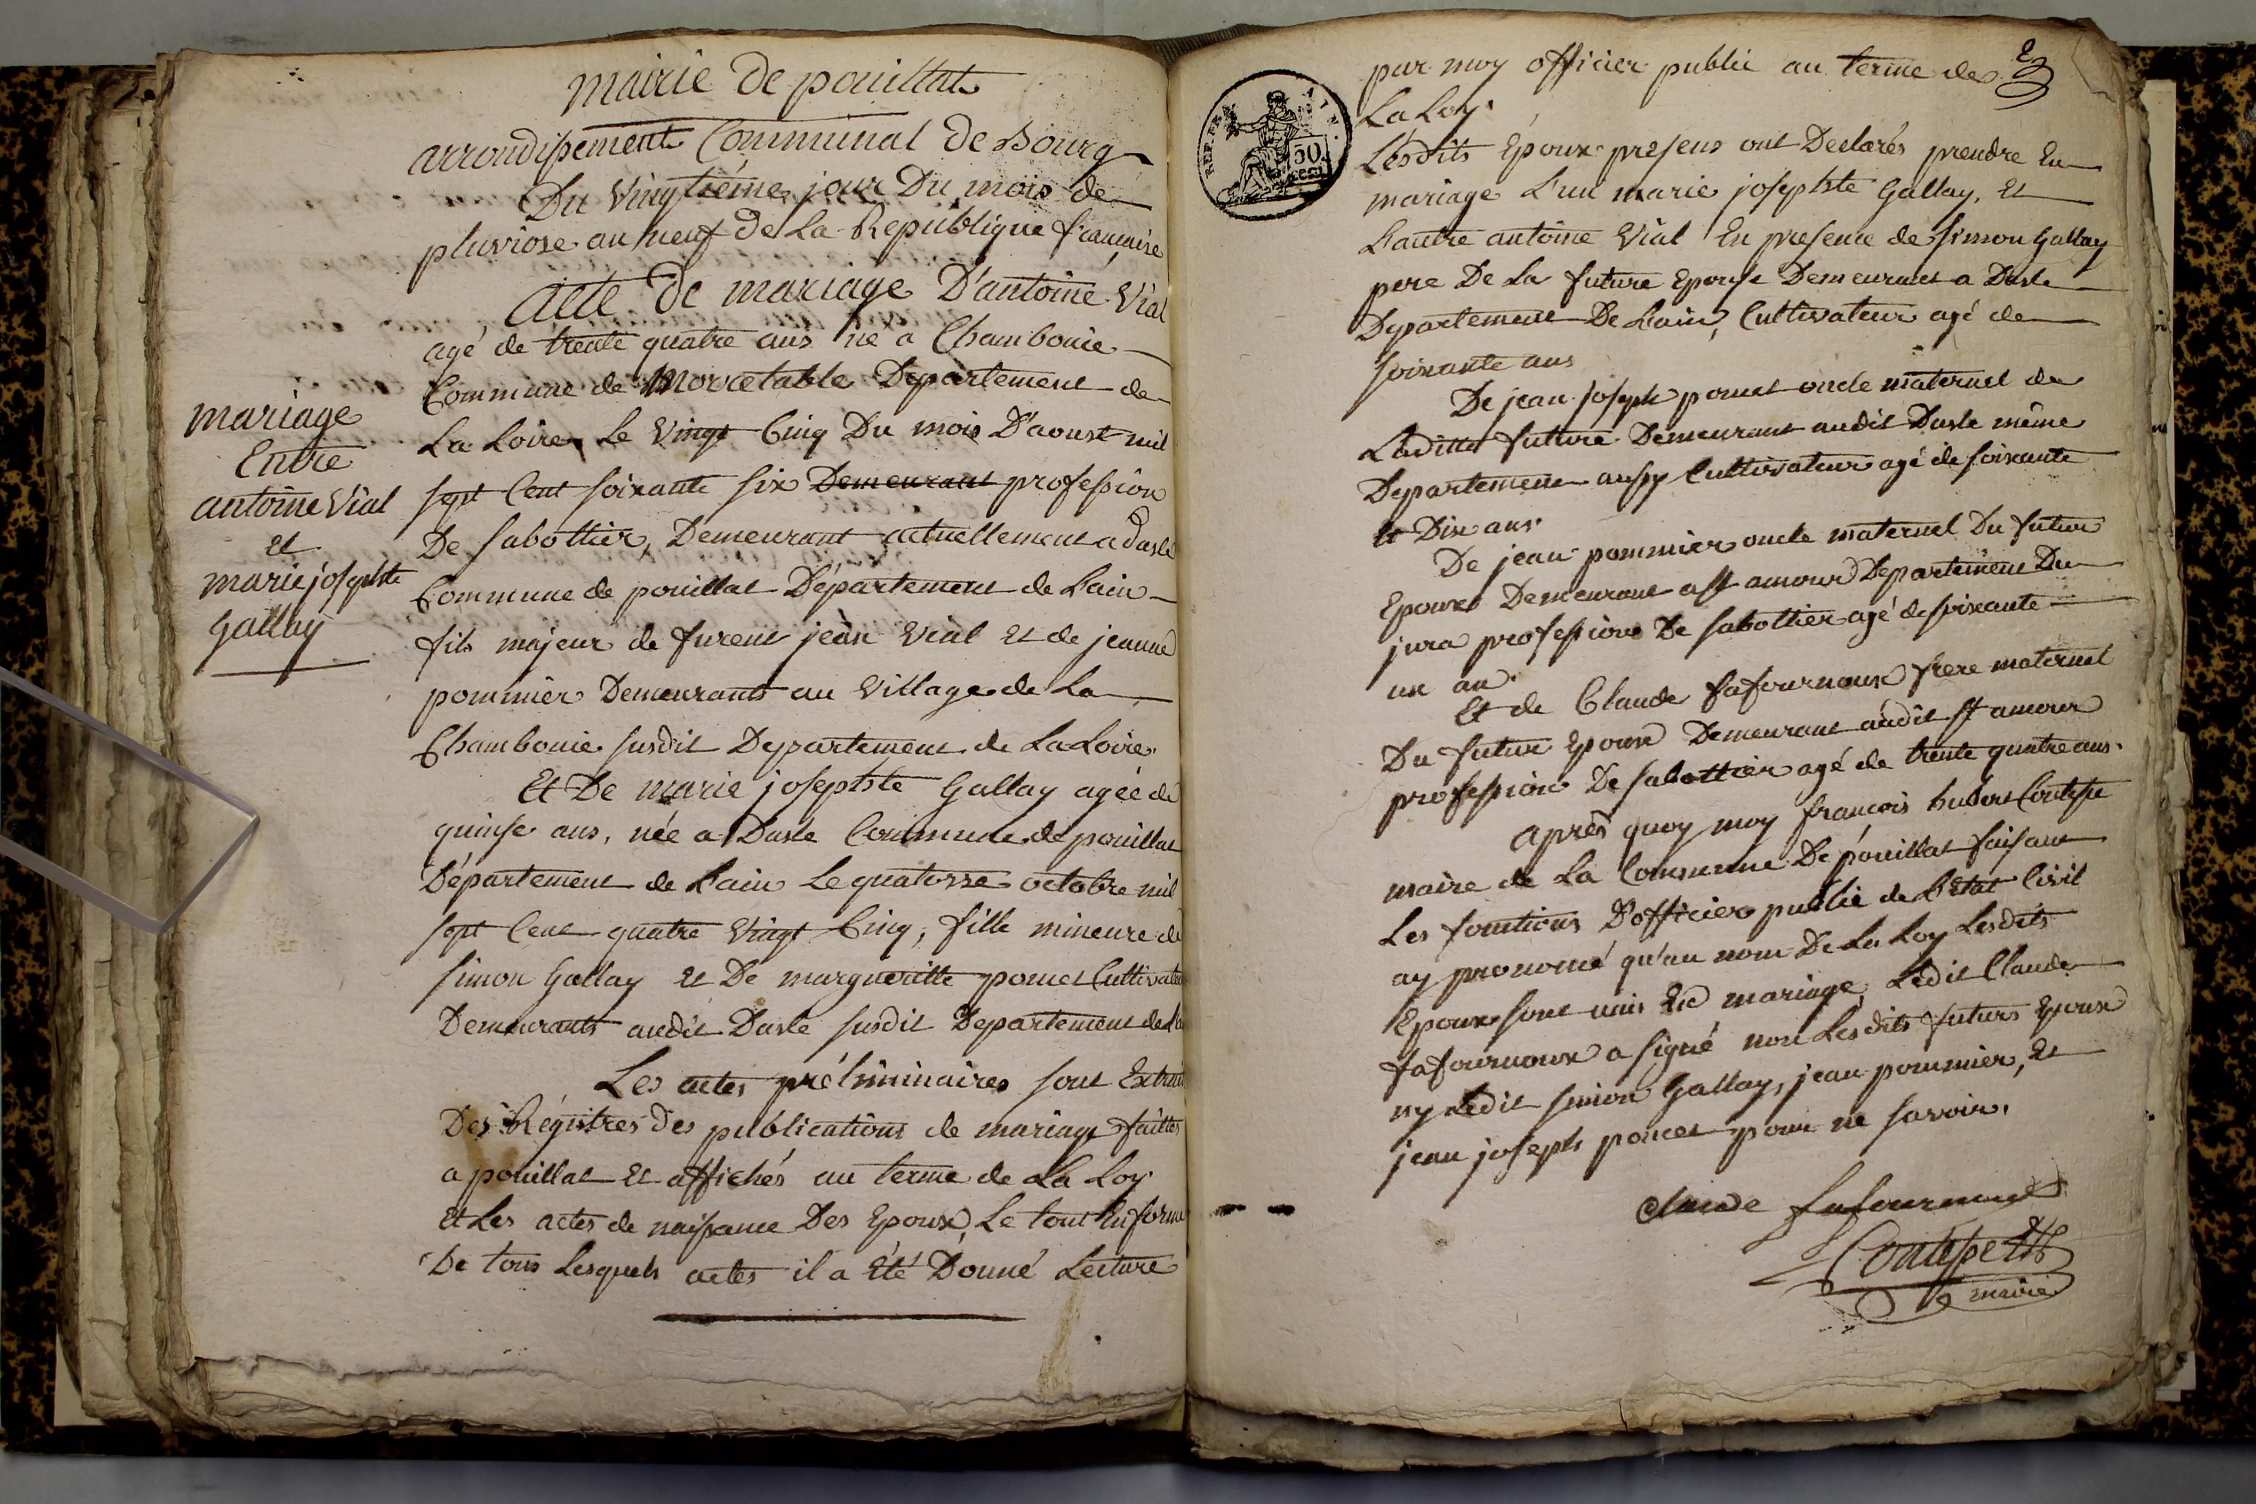 mairie De pouillat
arrondissement Communal de Bourg
Du Vingtiéme jour Du mois de
pluviose an neuf De La Republique francaise
Acte De mariage D'antoine Vial
agé de trente quatre ans né a Chambonie
Commune de Noiretable Departement de
La Loire Le Vingt Cinq Du mois D'aoust mil
sept Cent soixante six Demeurant profession
De sabottier, Demeurant actuellement a Dasle
Commune de pouillat Département de L'ain
fils majeur de furent jean Vial Et de jeanne
pommier Demeurants au Village de La
Chambonie susdit Departement de La Loire.
Et De marie josephte Gallay agée de
quinse ans, née a Dasle Commune de pouillat
Département de L'ain Le quatorse octobre mil
sept Cent quatre Vingt Cinq, fille mineure de
simon Gallay Et De margueritte poncet Cultivateurs
Demeurants audit Dasle susdit Departement de L'ain
Les actes préliminaires sont Extraits
Des Régistres Des publications de mariage faittes
a pouillat Et affichés au terme de La Loy
Et Les actes de naissance Des Epoux, Le tout En forme
De tous Lesquels actes il a Été Donné Lecture
mariage
Entre
antoine Vial
et
marie josephte
Gallay
2
REP. FRA.
50
cent
par moy officier public au terme de
La Loy.
Lesdits Epoux presens ont Declarés prendre En
mariage L'un marie josephte Gallay, Et
L'autre antoine Vial En presence de simon Gallay
pere De La future Epouse Demeurant a Dasle
Departement De L'ain, Cultivateur agé de
soixante ans
De jean joseph poncet oncle maternel de
Laditte future Demeurant audit Dasle même
Departement aussy Cultivateur agé de soixante
Et Dix ans.
De jean pommier oncle maternel Du futur
Epoux Demeurant a St amour Departement Du
jura profession De sabottier agé de soixante
un an.
Et de Claude fafournoux frere maternel
Du futur Epoux Demeurant audit St amour
profession De sabottier agé de trente quatre ans.
Après quoy moy francois hubert
maire de La Commune De pouillat faisant
Les fonctions D'officier public de L'Etat Civil
ay prononcé qu'au nom De La Loy Lesdits
Epoux sont unis En mariage, Ledit Claude
fafournoux a signé non Lesdits futurs Epoux
ny Ledit simon Gallay, jean pommier, Et
jean joseph poncet pour ne savoir.
claude fafournoux
maire